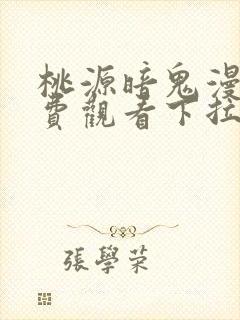 桃源暗鬼漫
費觀看下拉
張學荣